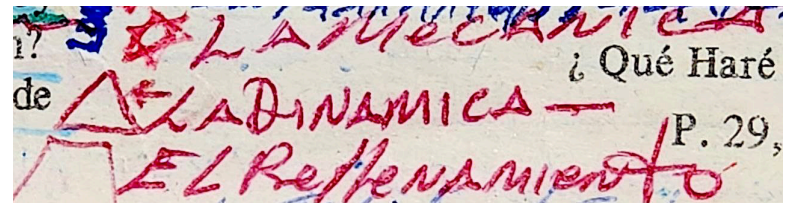 n? LA MeCANICA
¿ Qué Haré
de LA DINAMICA —
P. 29,
EL ReflenAMIentO